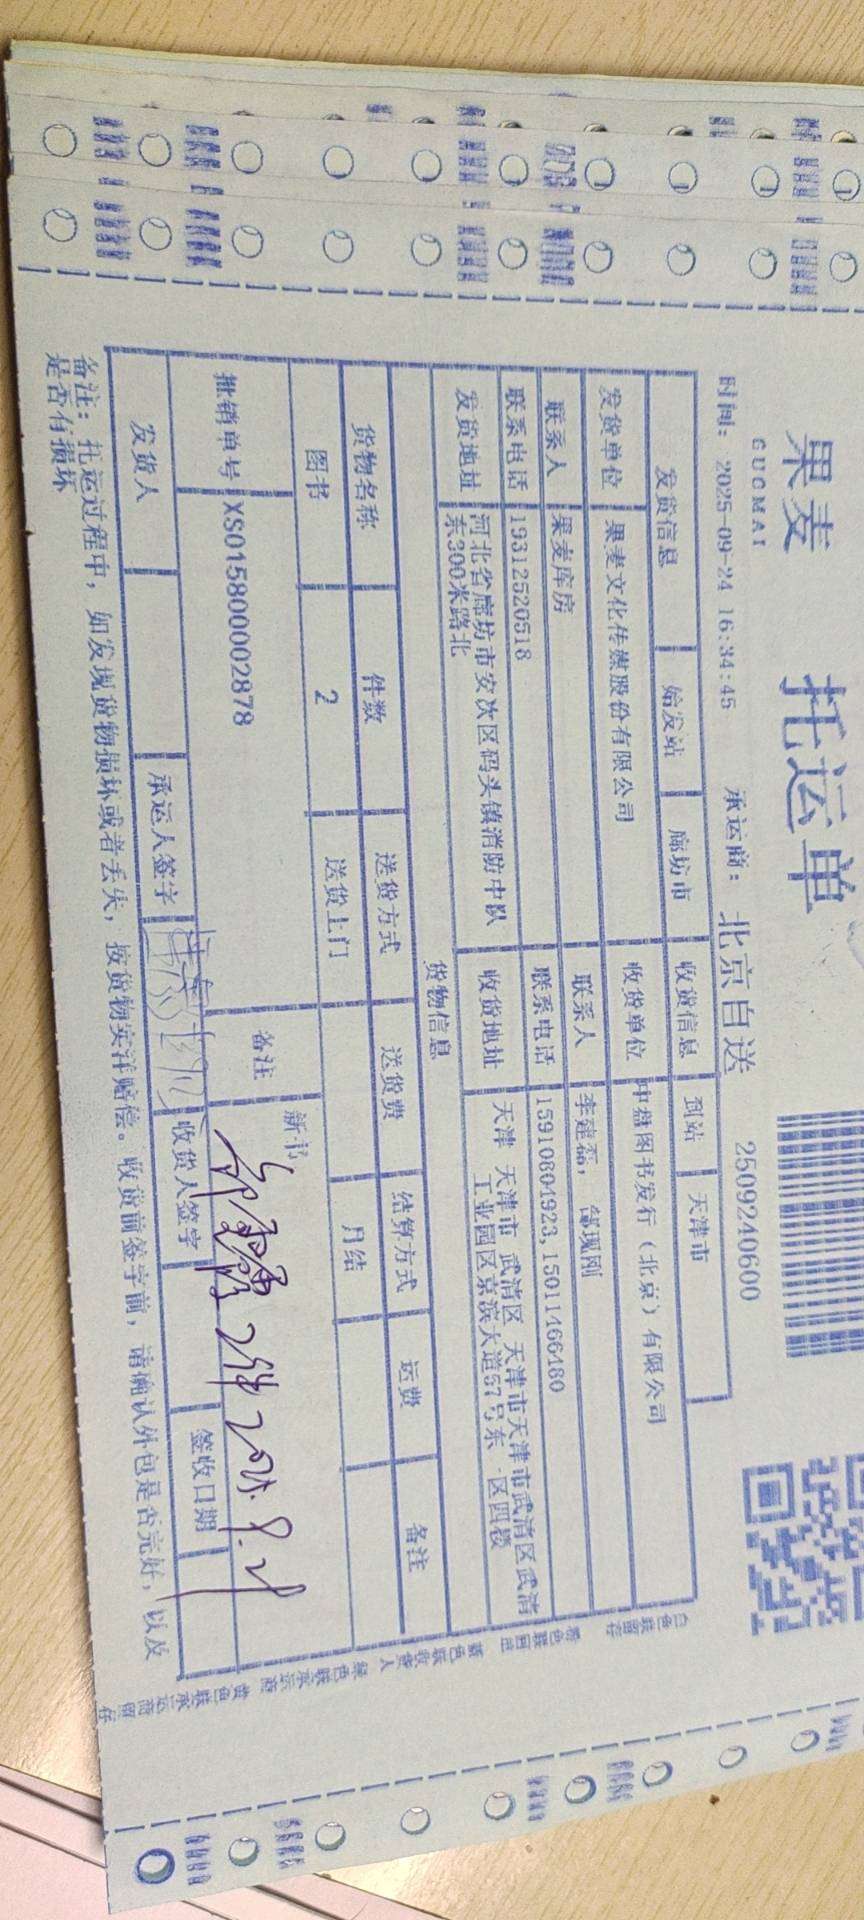 果麦 托运单
GUOMAI
时间: 2025-09-24 16:34:45 承运商: 北京自送 2509240600
发货信息 始发站 廊坊市 收货信息 到站 天津市
发货单位 果麦文化传媒股份有限公司 收货单位 中盘图书发行(北京)有限公司
联系人 果麦库房 联系人 李建磊,
联系电话 19312520518 联系电话 15910804923,15011466480
发货地址 河北省廊坊市安次区码头镇消防中队 收货地址 天津 天津市 武清区 天津市天津市武清区武清
东300米路北 工业园区京滨大道57号东 区四楼
货物信息
货物名称 件数 送货方式 送货费 结算方式 运费 备注
图书 2 送货上门 月结
批销单号 XS01580002878 备注 新书
2件 2025.9.21
发货人 承运人签字 收货人签字 签收日期
备注: 托运过程中, 如发现货物损坏或者丢失, 按货物实洋赔偿。收货前签字前, 请确认外包是否完好, 以及
是否有损坏
白色联留存